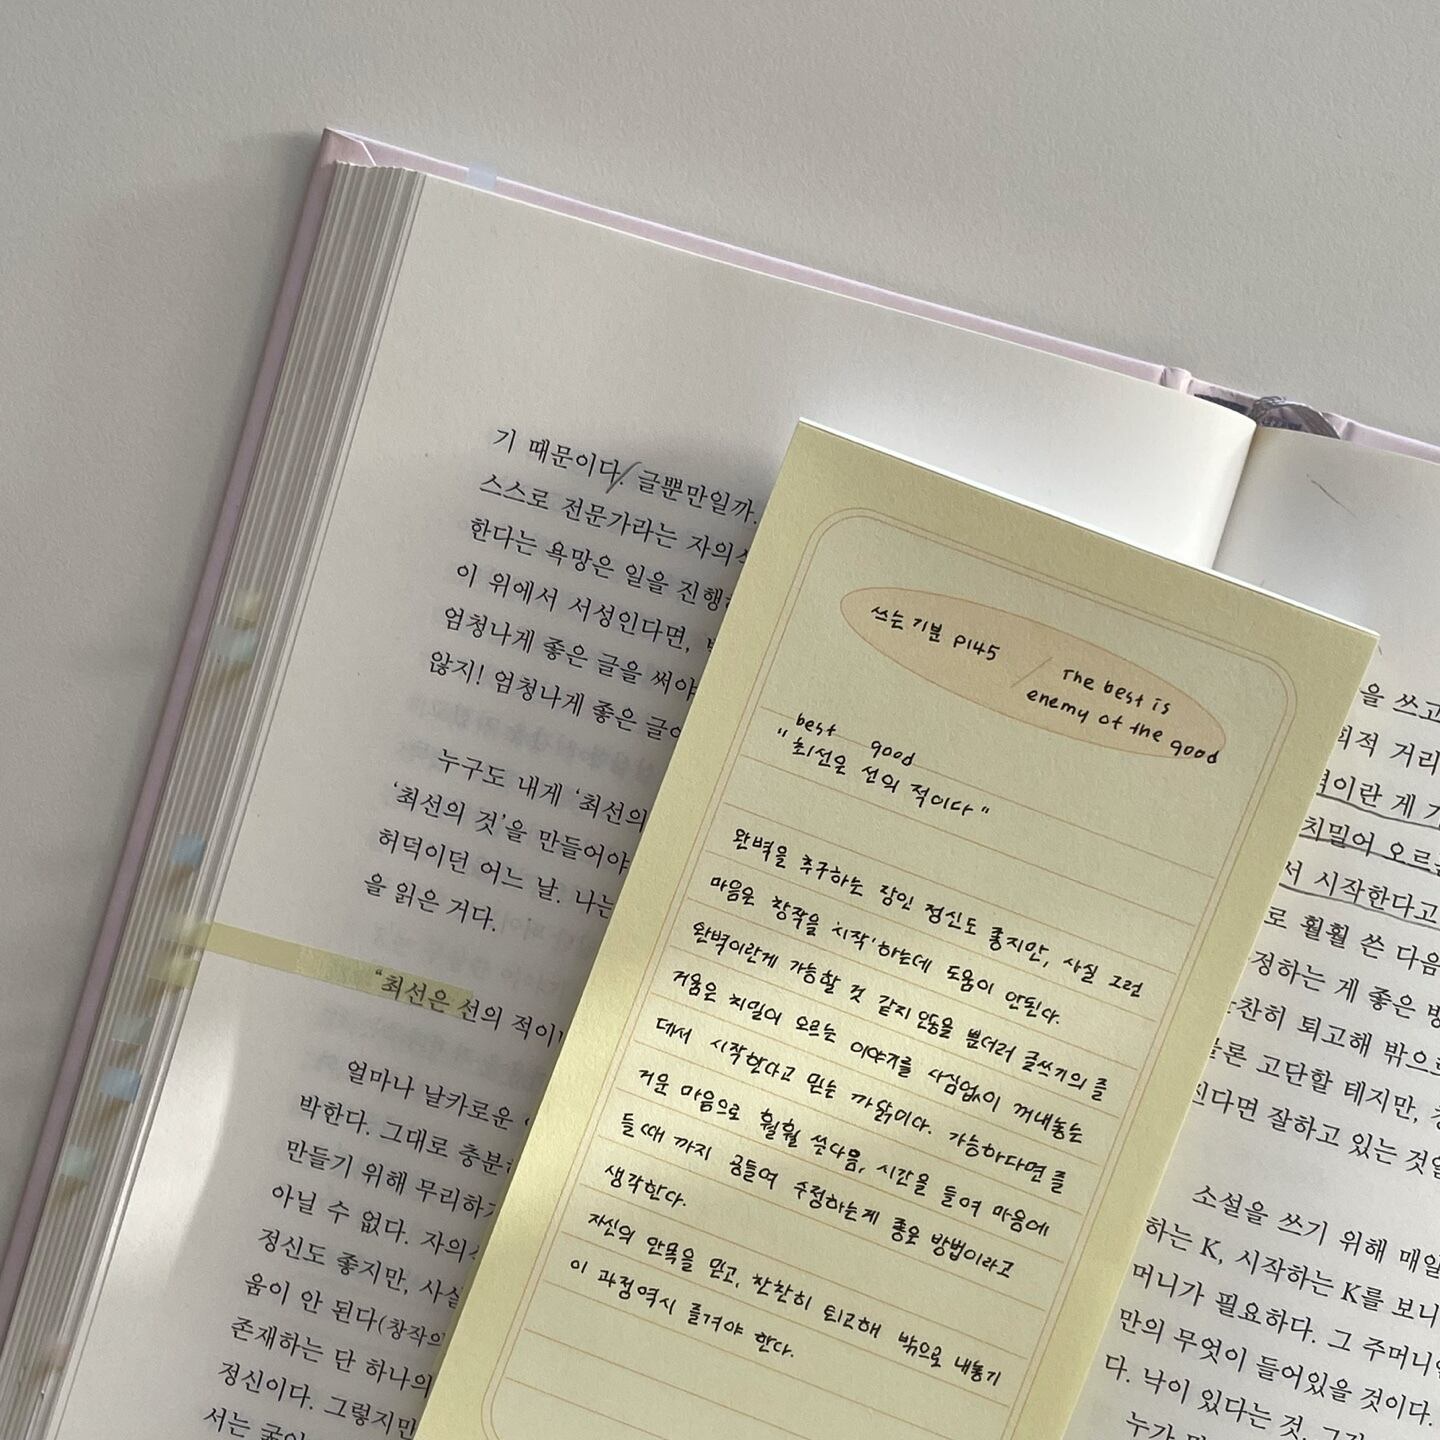 기 때문이다. 글뿐만일까.
스스로 전문가라는 자의식
한다는 욕망은 일을 진행
이 위에서 서성인다면,
엄청나게 좋은 글을 써야
않지! 엄청나게 좋은 글
누구도 내게 ‘최선의
‘최선의 것’을 만들어야
허덕이던 어느 날. 나는
을 읽은 거다.
“최선은 선의 적이
얼마나 날카로운
박한다. 그대로 충분
만들기 위해 무리하
아닐 수 없다. 자의
정신도 좋지만, 사실
움이 안 된다(창작의
존재하는 단 하나의
정신이다. 그렇지만
서는
쓰는 기분 P145 / The best is
enemy of the good
best good
"최선은 선의 적이다"
완벽을 추구하는 장인 정신도 좋지만, 사실 그런
마음은 창작을 '시작'하는데 도움이 안된다.
완벽이란게 가능할 것 같지 않을 뿐더러 글쓰기의 즐
거움은 치밀어 오르는 이야기를 사심없이 꺼내놓는
데서 시작한다고 믿는 까닭이다. 가능하다면 즐
거운 마음으로 훨훨 쓴다음, 시간을 들여 마음에
들때 까지 공들여 수정하는게 좋은 방법이라고
생각한다.
자신의 안목을 믿고, 찬찬히 퇴고해 밖으로 내놓기
이 과정역시 즐겨야 한다.
을 쓰고
적 거리
이란 게
치밀어 오르
서 시작한다고
로 훨훨 쓴 다음
정하는 게 좋은
찬히 퇴고해 밖으로
론 고단할 테지만,
진다면 잘하고 있는 것일
소설을 쓰기 위해 매일
하는 K, 시작하는 K를 보니
머니가 필요하다. 그 주머니
만의 무엇이 들어있을 것이다.
다. 낙이 있다는 것. 그
누가